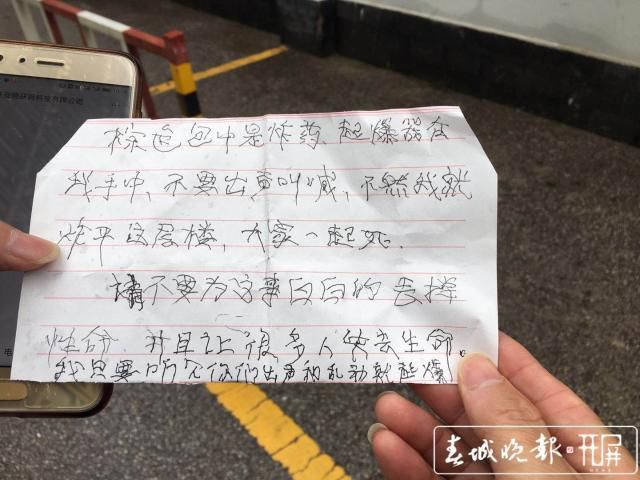 棕色包中是炸药、起爆器在
我手中，不要出声叫喊，不然我就
炸平这层楼，大家一起死.
请不要为这事白白的丢掉
性命. 并且让很多人失去生命。
我只要听见你们出声和乱动就起爆
春城晚报 开屏